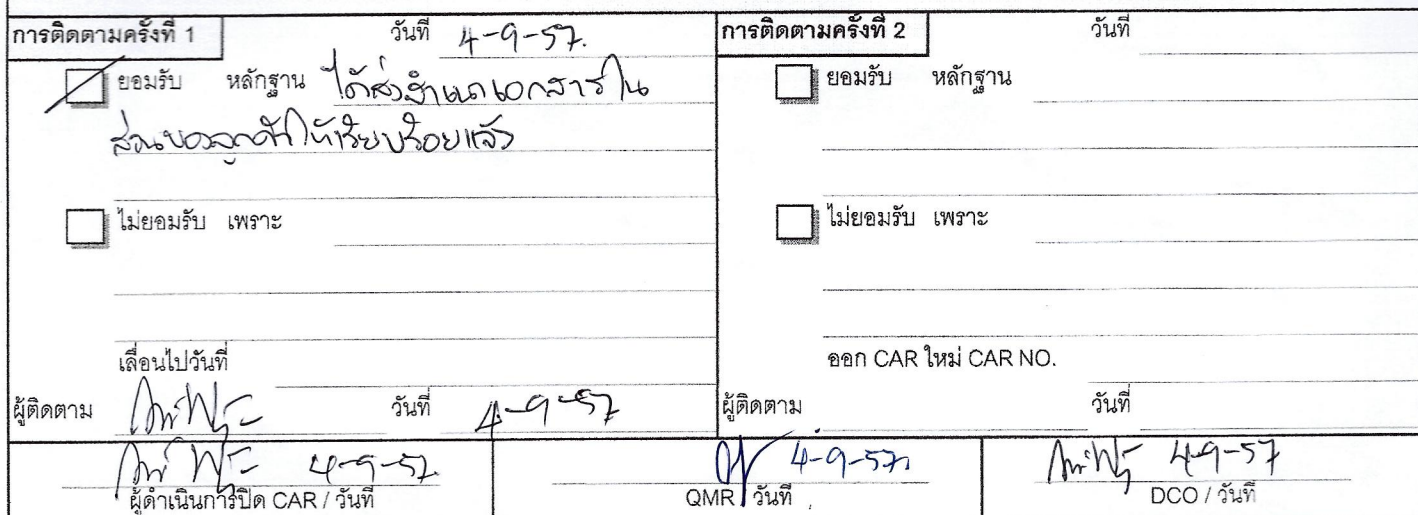 การติดตามครั้งที่ 1 วันที่ 4-9-57.
ยอมรับ หลักฐาน ได้ส่งสำเนาเอกสารใน
ส่วนของลูกค้าให้เรียบร้อยแล้ว
ไม่ยอมรับ เพราะ
เลื่อนไปวันที่
ผู้ติดตาม วันที่ 4-9-57
การติดตามครั้งที่ 2 วันที่
ยอมรับ หลักฐาน
ไม่ยอมรับ เพราะ
ออก CAR ใหม่ CAR NO.
ผู้ติดตาม วันที่
4-9-57.
ผู้ดำเนินการปิด CAR / วันที่
4-9-57.
QMR / วันที่
4-9-57
DCO / วันที่